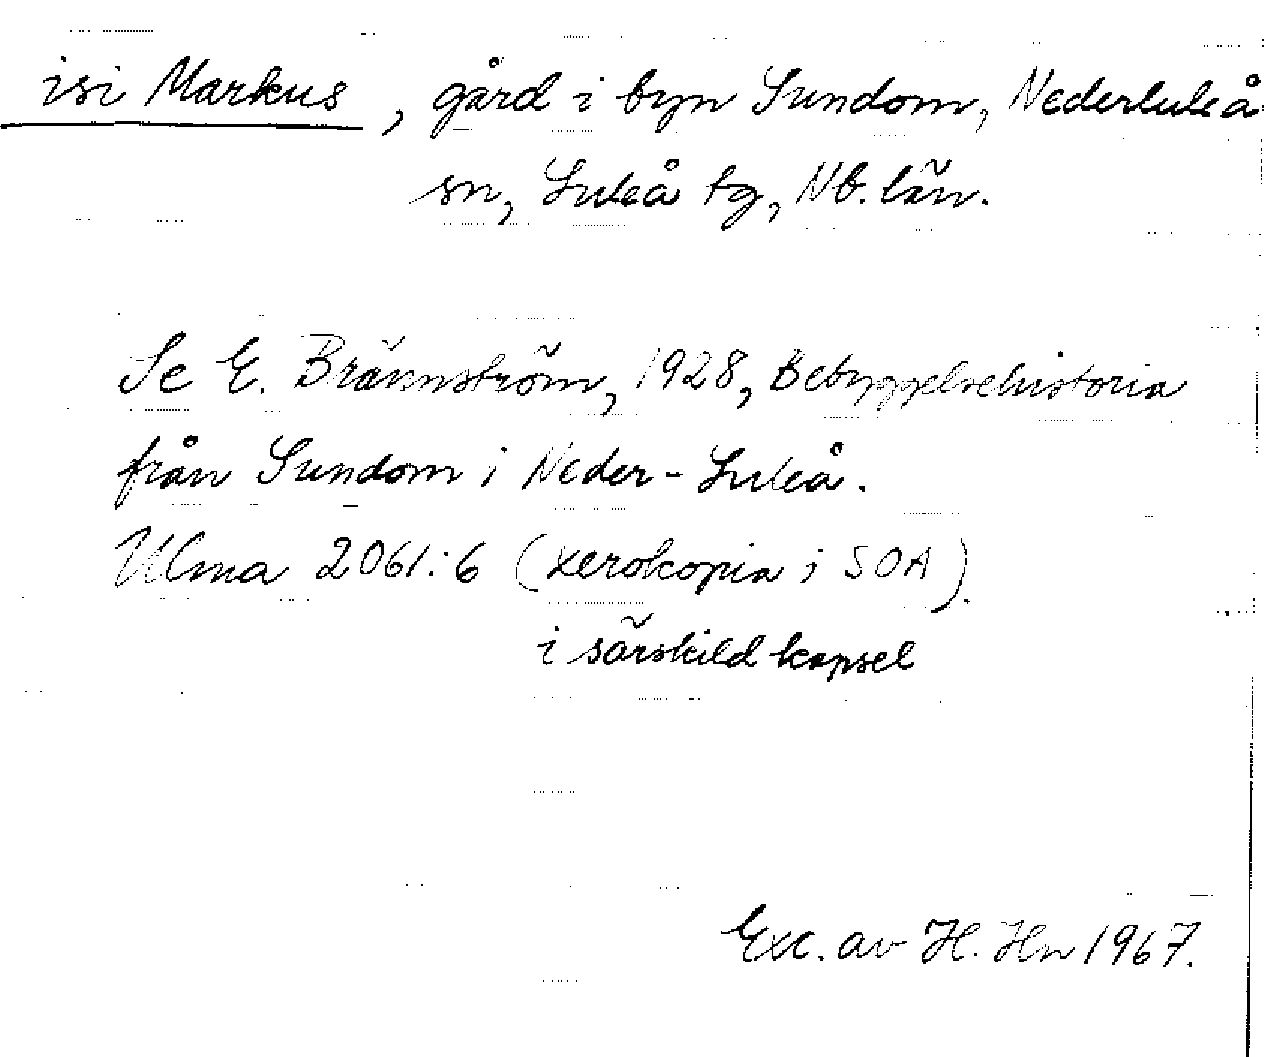 isi Markus, gård i byn Sundom, Nederluleå
sn, Luleå tg, Nb. län.
Se E. Brännström, 1928, Bebyggelsehistoria
från Sundom i Neder-Luleå.
Ulma 2061:6 (xerokopia i SOA).
i särskild kapsel
Exc. av H. Hn 1967.